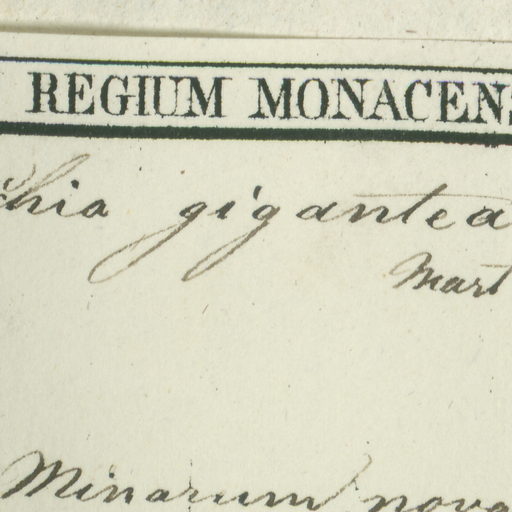 REGIUM MONACENS
chia gigantea
Mart
Minarum nova